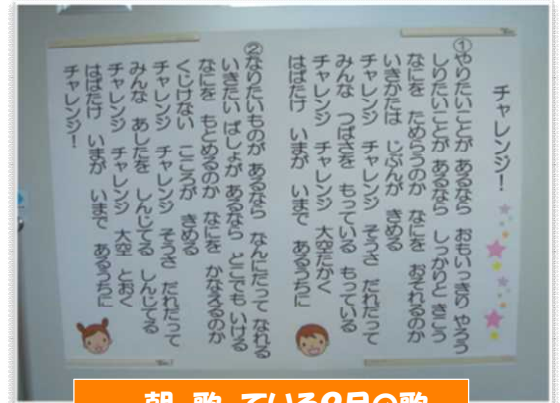 チャレンジ！
①やりたいことが あるなら おもいっきり やろう
しりたいことが あるなら しっかりと きこう
なにを ためらうのか なにを おそれるのか
いきかたは じぶんが きめる
チャレンジ チャレンジ そうさ だれだって
みんな つばさを もっている もっている
チャレンジ チャレンジ 大空たかく
はばたけ いまが いまで あるうちに
②なりたいものが あるなら なんにだって なれる
いきたい ばしょが あるなら どこでも いける
なにを もとめるのか なにを かなえるのか
くじけない こころが きめる
チャレンジ チャレンジ そうさ だれだって
みんな あしたを しんじてる しんじてる
チャレンジ チャレンジ 大空 とおく
はばたけ いまが いまで あるうちに
チャレンジ！
朝 歌 ている9月の歌